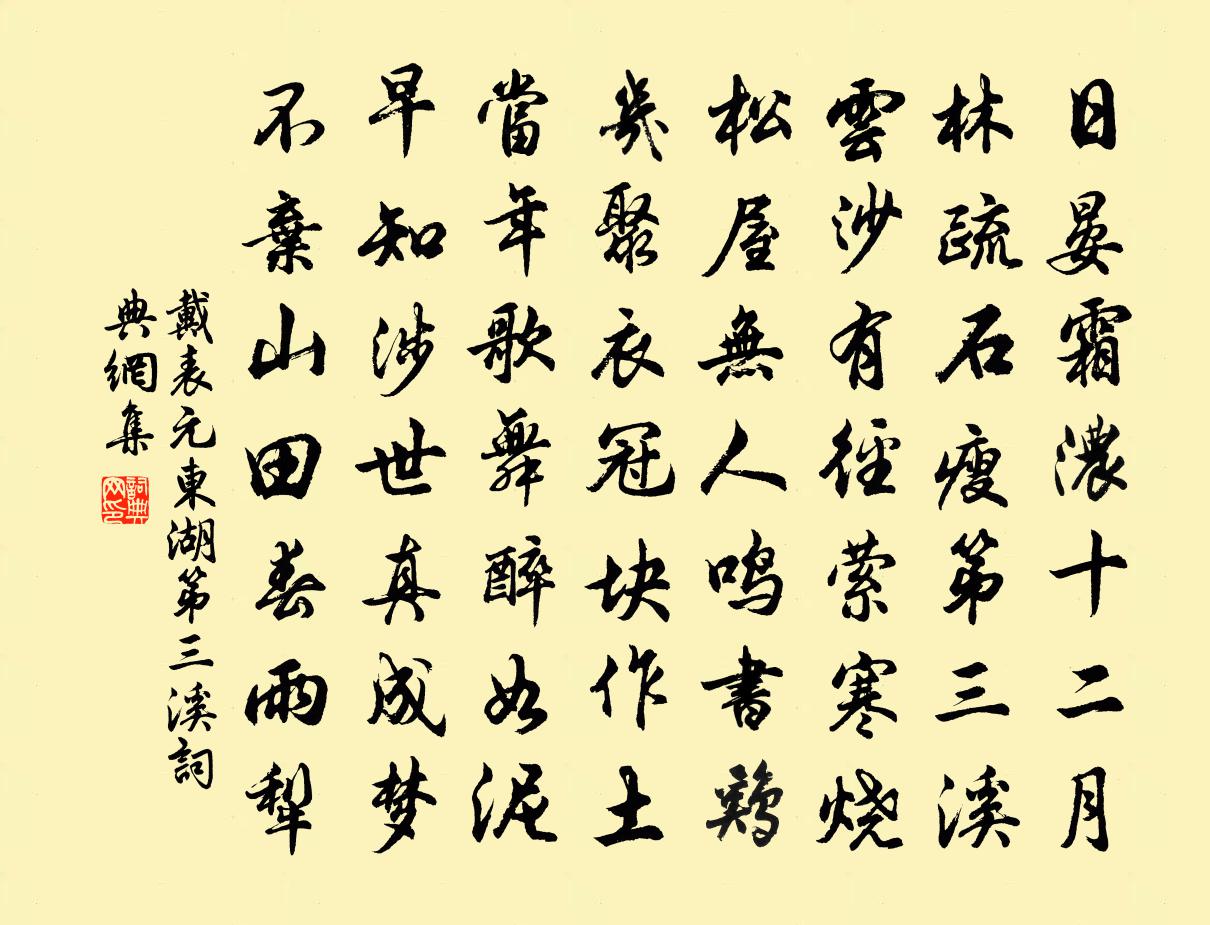 日晏霜濃十二月
林疏石瘦第三溪
雲沙有徑縈寒燒
松屋無人鳴晝鷄
幾聚衣冠块作土
當年歌舞醉如泥
早知涉世真成梦
不棄山田春雨犁
戴表元東湖第三溪詞
典網集
詞典
网印